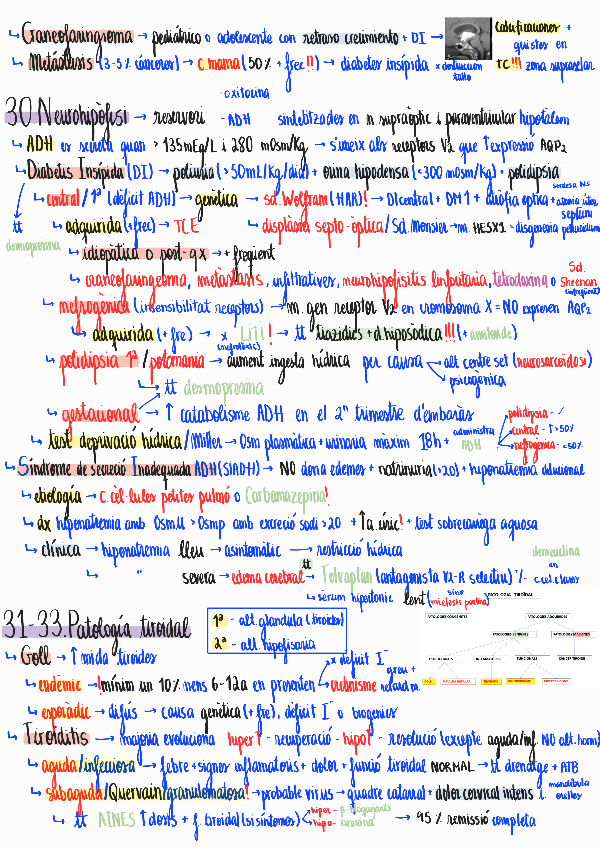 ↳ Craneofaringioma → pediátrico o adolescente con retraso crecimiento + DI → calcificaciones + quistes en
↳ Metástasis (3-5% cánceres) → c. mama (50% + frec!!) → diabetes insípida x destrucción tallo TC!!! zona supraselar
30. Neurohipòfisi → reservori - oxitocina - ADH sintetitzades en n supraòptic i paraventricular hipotàlem
↳ ADH es secreta quan > 135mEq/L i 280 mOsm/Kg → s'uneix als receptors V2 que ↑ expressió AQP2
↳ Diabetis Insípida (DI) → poliuria (>50mL/Kg/dia) + orina hipodensa (<300 mosm/Kg) + polidipsia
↳ central / 1ª (dèficit ADH) → genètica → sd. Wolfram (HAR)! → DI central + DM1 + atròfia òptica + sordesa NS
tt desmopresina
↳ adquirida (+ frec) → TCE ↳ displàsia septo-òptica / Sd. Morsier → m. HESX1 = disagenesia septum pelucidum
↳ idiopàtica o post-qx → + freqüent
↳ craneofaringeoma, metàstasis, infiltratives, neurohipofisitis linfocitaria, tetrodoxina o Sd. Sheehan (infreqüent)
↳ nefrogènica (insensibilitat receptors) → m. gen receptor V2 en cromosoma X = NO expresen AQP2
↳ adquirida (+ fre) → x LiTi! → tt tiazidics + d. hiposòdica!!! (+ amiloride)
(nefrotòxic)
↳ polidipsia 1ª / potomania → aument ingesta hídrica per causa alt. centre set (neurosarcoidosi)
psicogènica
↳ tt desmopresina
↳ gestacional → ↑ catabolisme ADH en el 2n trimestre d'embaràs
↳ test deprivació hídrica / Miller → Osm plasmàtica + urinaria màxim 18h + administra ADH
polidipsia - ✓
central - ↑ >50%
nefrogènica - <50%
↳ Síndrome de secreció Inadequada ADH (SIADH) → NO dona edemes + natrinuria (>20) + hiponatremia dilucional
↳ etiología → c. cèl·lules petites pulmó o Carbamazepina!
↳ dx hiponatremia amb OsmU > Osmp amb excreció sodi > 20 + ↑ a. úric! + test sobrecarrega aquosa
↳ clínica → hiponatremia lleu → asintomàtic → restricció hídrica
↳ " severa → edema cerebral → tt Tolvaptan (antagonista V2-R selectiu) demeclocina
↳ sèrum hipertonic lent (sino mielosis pontina)
31-33. Patología tiroidal
1ª - alt. glandula (tiroides)
2ª - alt. hipofisaria
PATOLOGIA TIROIDAL
PATOLOGIES CONGÈNITES
PATOLOGIES ADQUIRIDES
PATOLOGIES BENIGNES
PATOLOGIES MALIGNES
INFLAMATORIES
FUNCIONALS
CÀNCER TIROIDE
↳ Goll → ↑ mida tiroides
↳ endèmic → !mínim un 10% nens 6-12a en presenten x dèficit I⁻
cretinisme greu +
↳ esporàdic → difús → causa genètica (+ fre), dèficit I⁻ o biogenics
↳ Tiroiditis → majoria evoluciona hiperT - recuperació - hipoT - resolució (excepte aguda/inf. NO alt. horm)
↳ aguda / infecciosa → febre + signes inflamatoris + dolor + funció tiroidal NORMAL → tt drenatge + ATB
↳ subaguda / Quervain / granulomatosa! → probable virus → quadre cataral + dolor cervical intens i. mandíbula orelles
↳ tt AINES ↑ dosis + f. tiroidal (si símptomes) hiper - β-bloquejants
hipo - tiroxina → 95% remissió completa